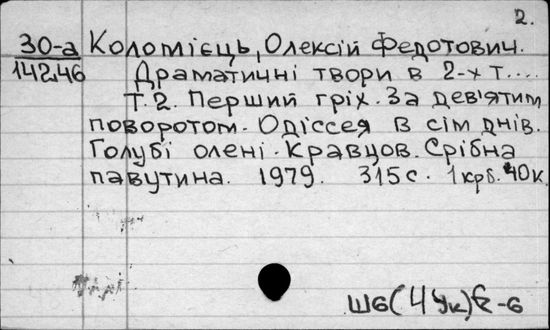 2.
30-а Коломієць, Олексій Федотович.
142.46 Драматичні твори в 2-х т....
Т.2. Перший гріх. За дев'ятим
поворотом. Одіссея в сім днів.
Голубі олені. Кравцов. Срібна
павутина. 1979. 315 с. 1 крб. 40 к.
Ш6(4Ук)6-6